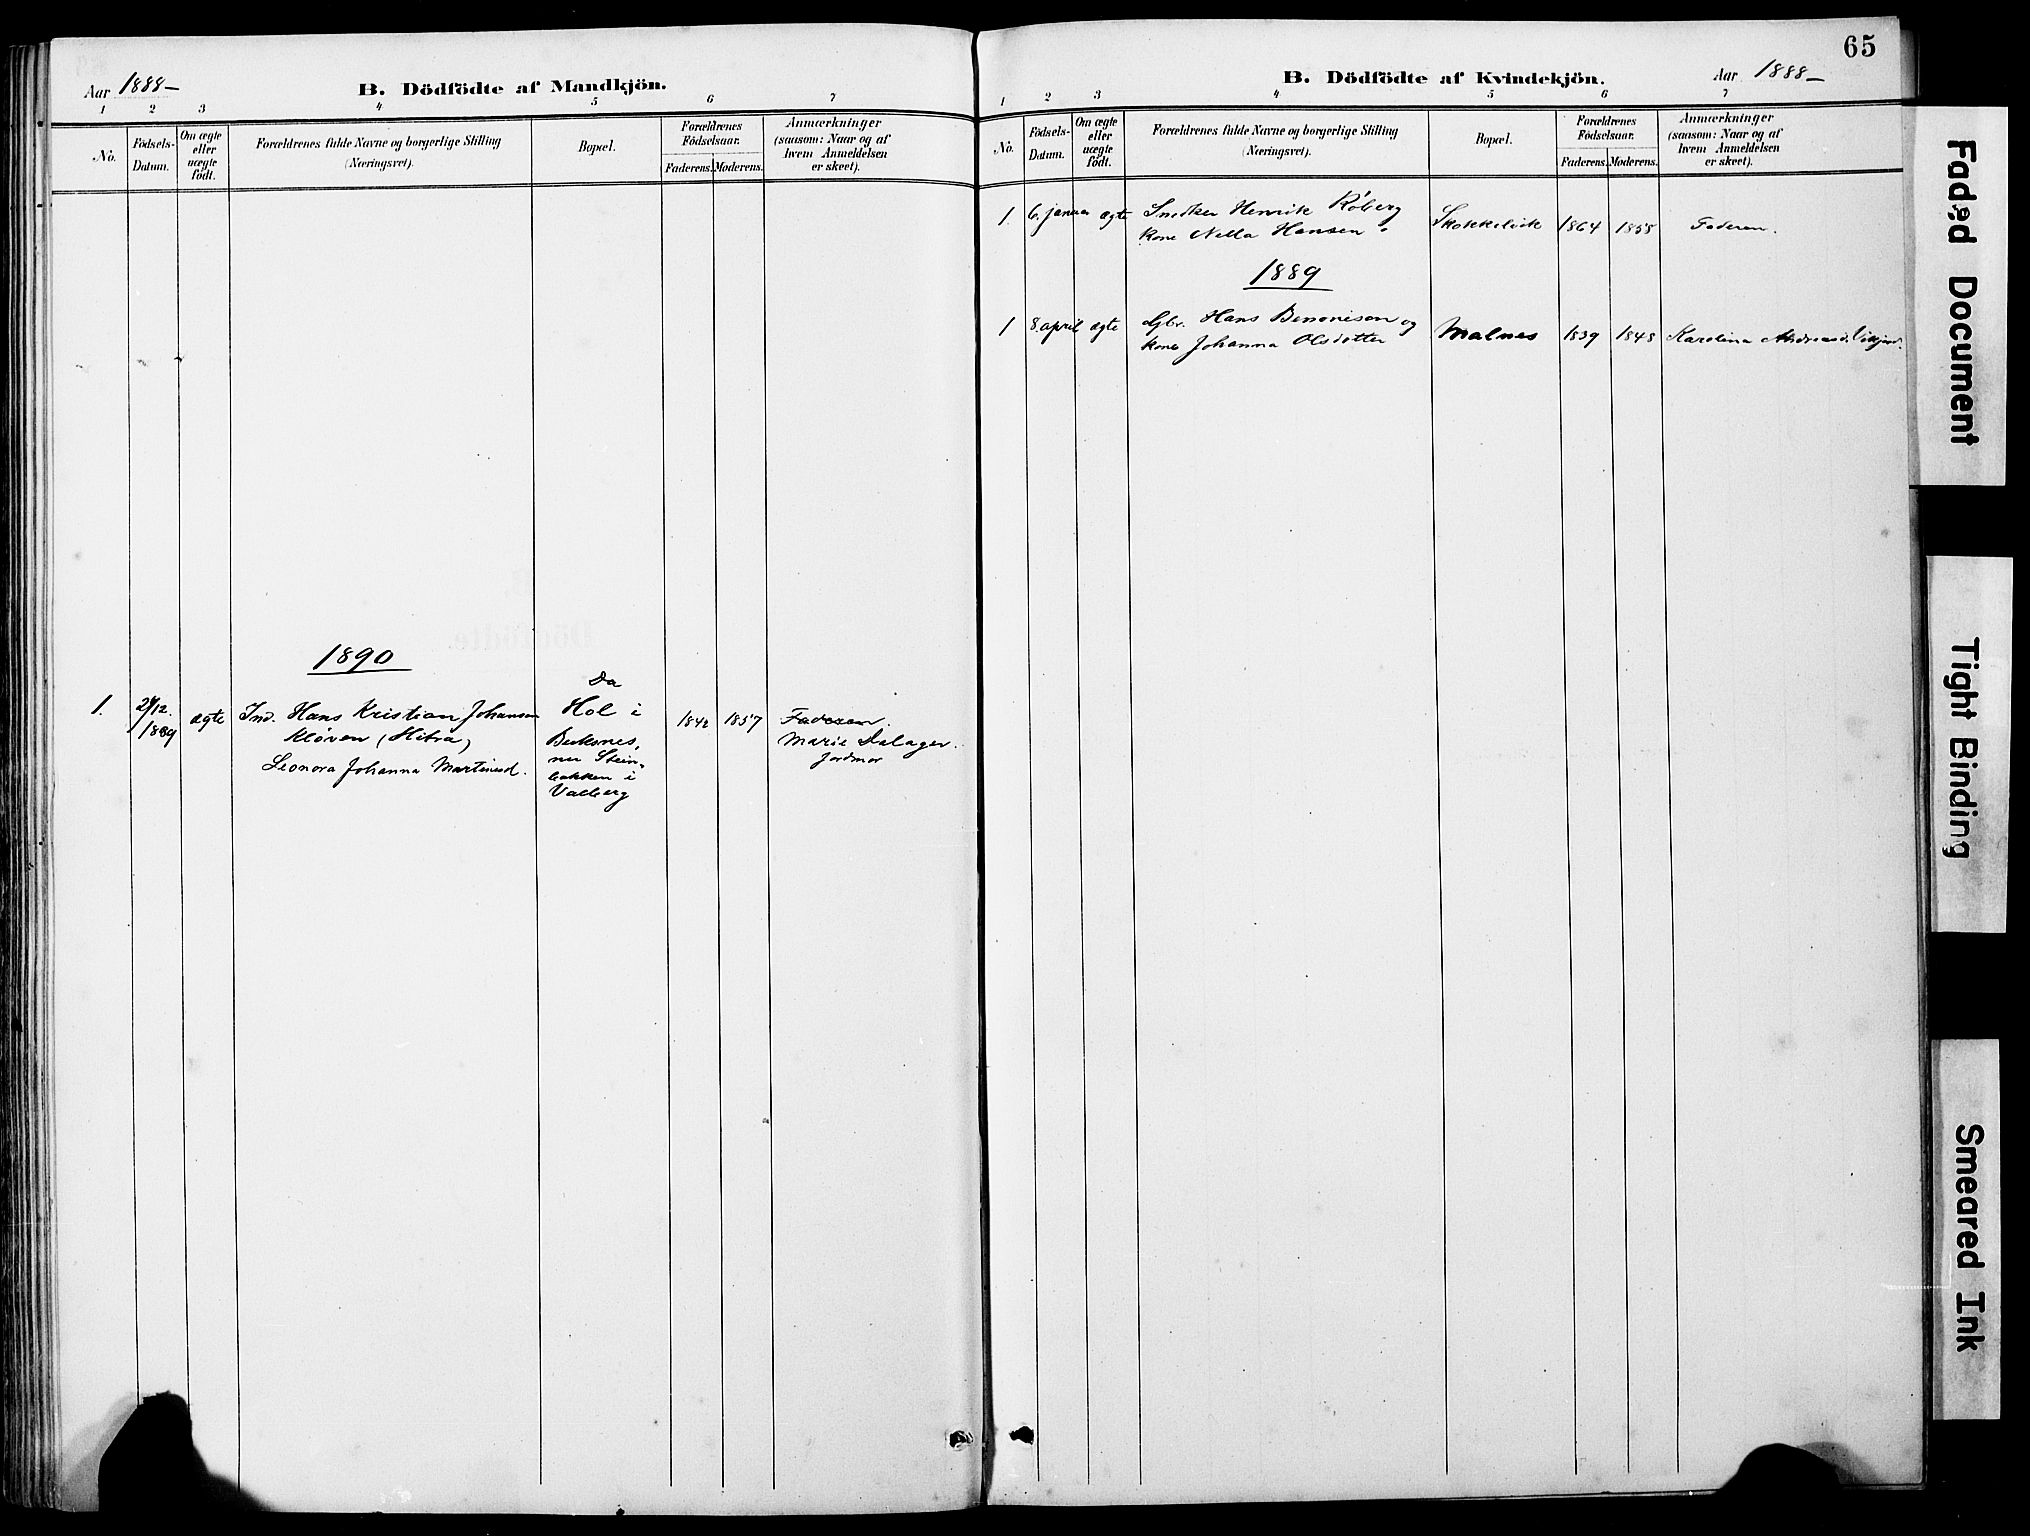 Aar 1888-
B. Dödfödte af Mandkjön.
1 2 3 4 5 6 7
No.
Födsels-
Datum.
Om ægte
eller
uægte
födt.
Forældrenes fulde Navne og borgerlige Stilling
(Næringsvei).
Bopæl.
Forældrenes
Födselsaar.
Faderens. Moderens.
Anmærkninger
(saasom: Naar og af
hvem Anmeldelsen
er skeet).
1890
1.
1889
ægte
Ind. Hans Kristian Johansen
Kløven (Hitra)
Leonora Johanna Martinesd.
Da
Hol i
Buksnes,
nu Stein-
bakken i
Valberg
1842 1857
Faderen.
Marie Dalager.
Jordmor
65
B. Dödfödte af Kvindekjön.
Aar 1888-
1 2 3 4 5 6 7
No.
Födsels-
Datum.
Om ægte
eller
uægte
födt.
Forældrenes fulde Navne og borgerlige Stilling
(Næringsvei).
Bopæl.
Forældrenes
Födselsaar.
Faderens. Moderens.
Anmærkninger
(saasom: Naar og af
hvem Anmeldelsen
er skeet).
1. 6. januar ægte Snedker Henrik Røberg
kone Nella Hansen
1864 1858 Faderen.
1889
1 8. april ægte Gbr. Hans Benonisen og
kone Johanna Olsdatter
Malnes 1839 1848 Karolina Andreasd.
Faded Document
Tight Binding
Smeared Ink